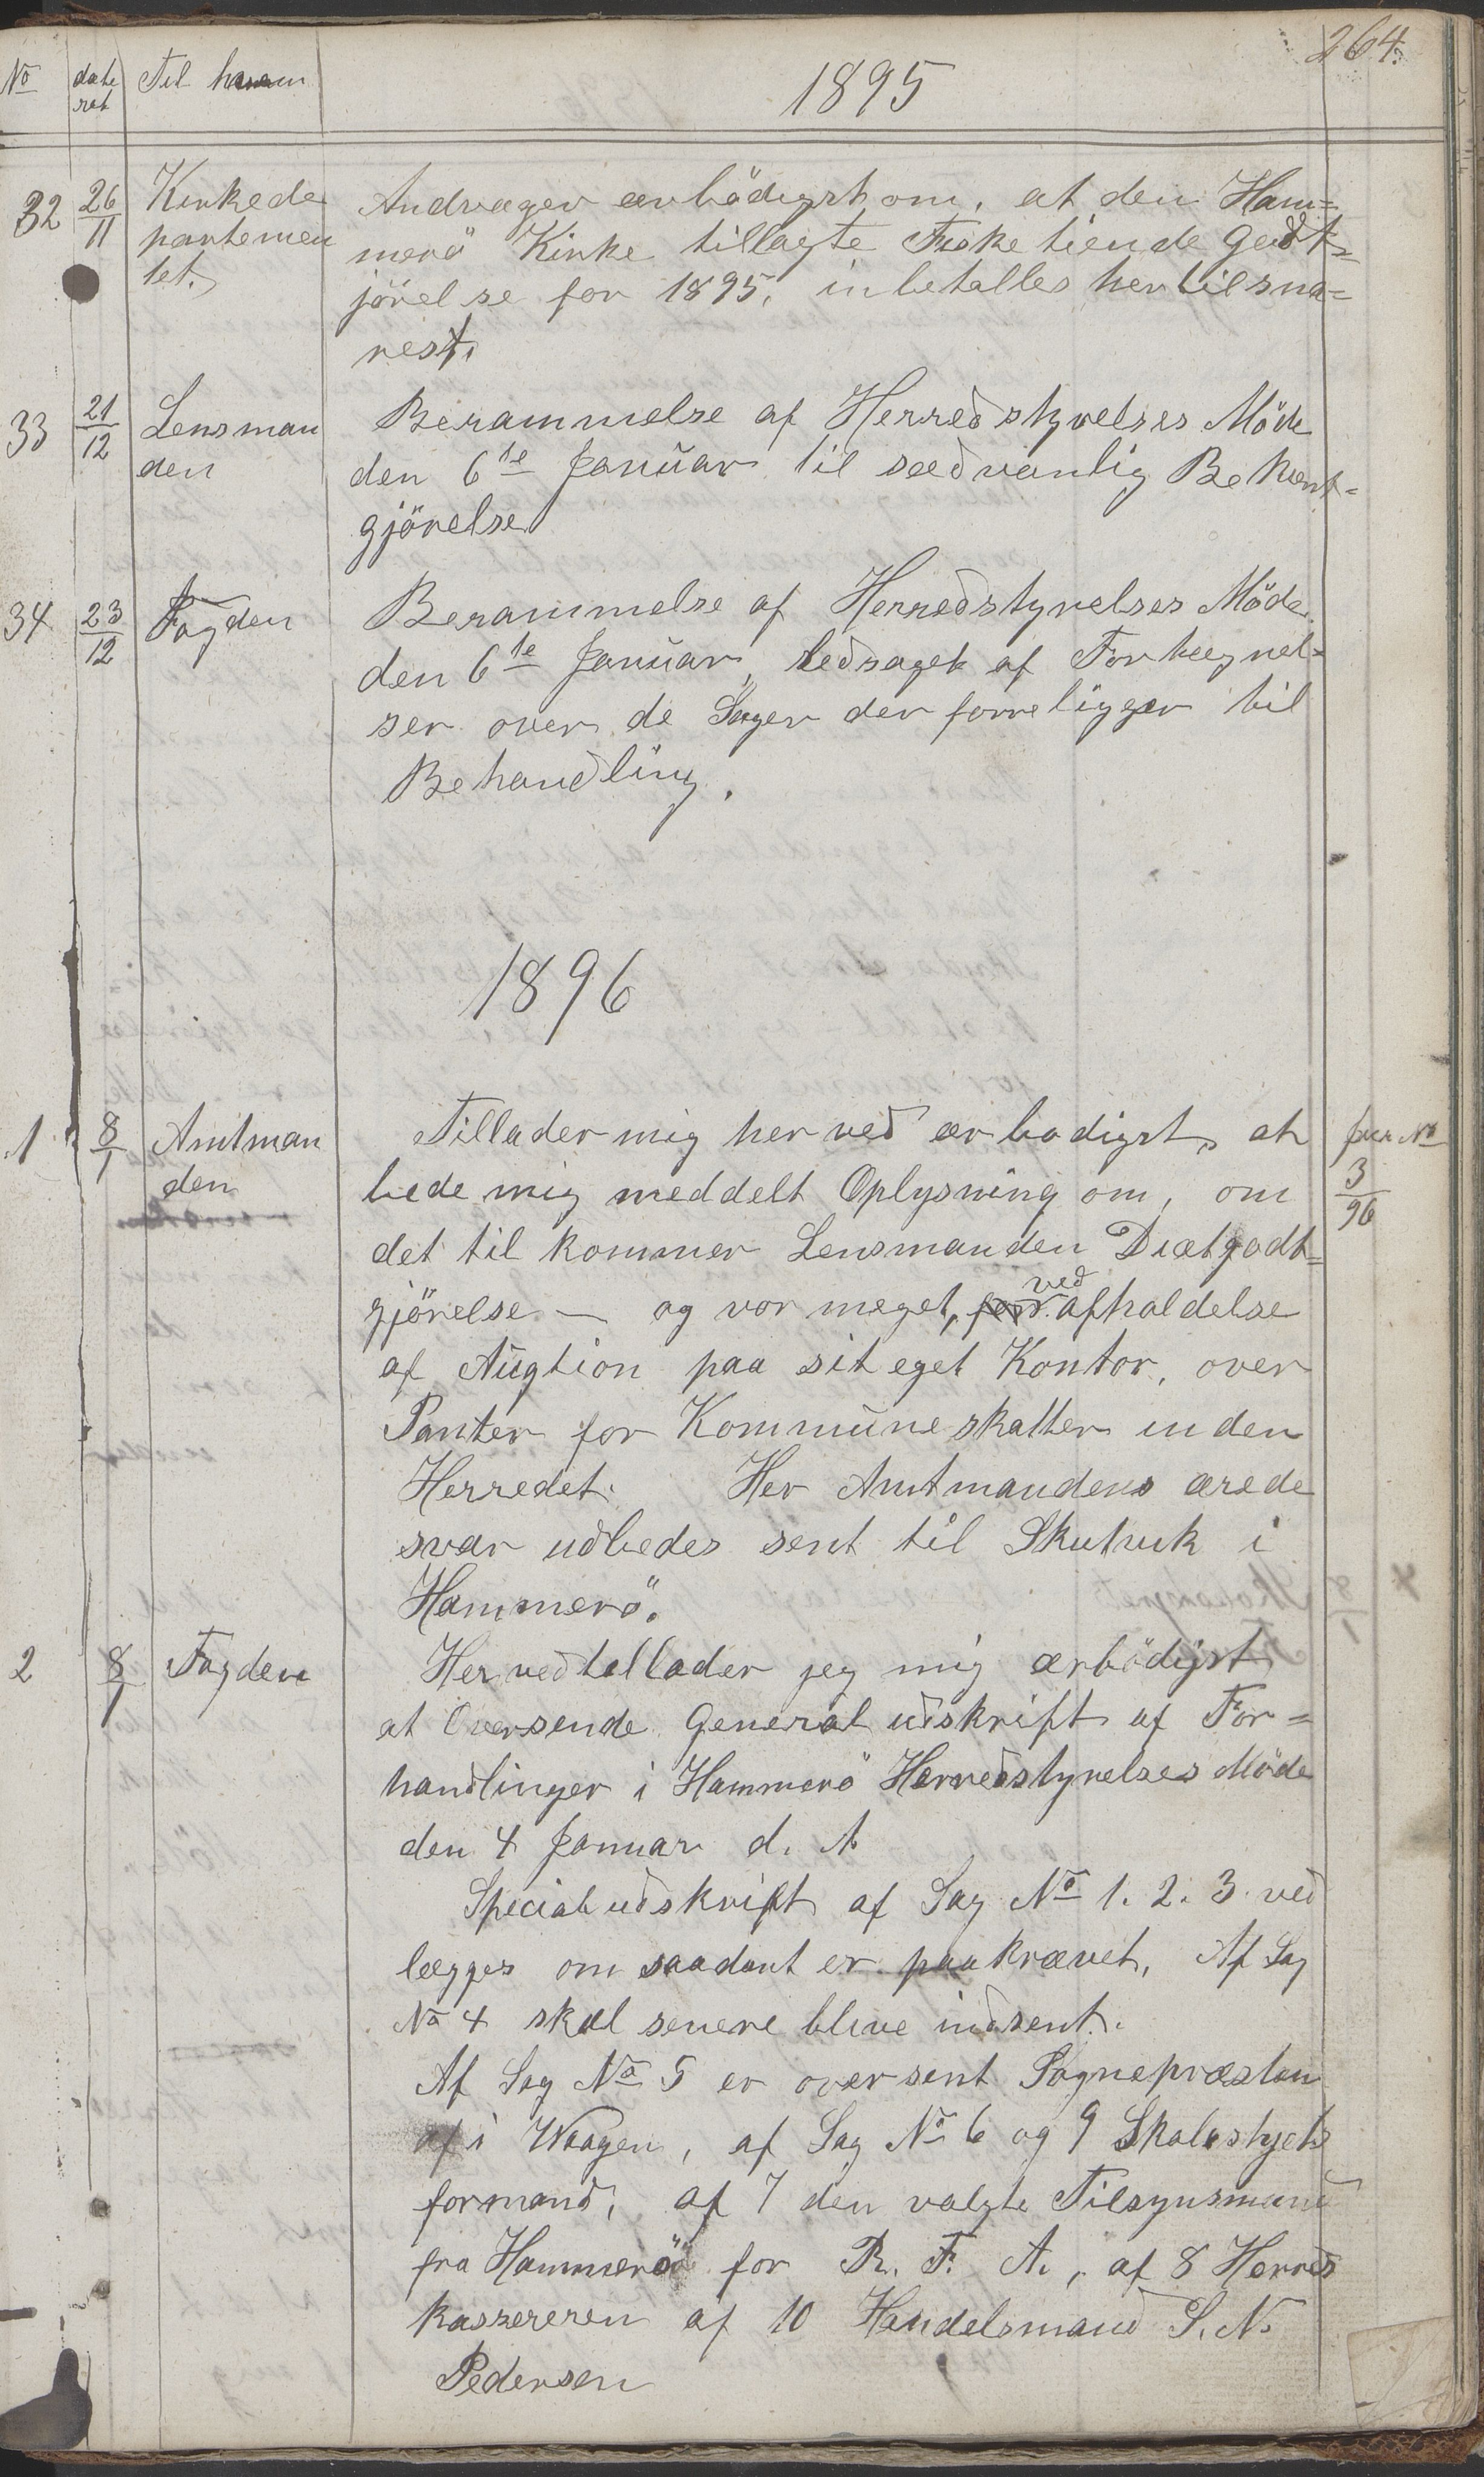 264.
No date rat Til hvem 1895
32 26/11 Kirkede Andrager ærbödigst om, at den Ham=
partemen merö Kirke tillagte Fiske tiende Godt=
tet. jörelse for 1895, inbetalles hertil sna=
rest.
33 21/12 Lensman Berammelse af Herredstyrelses Möde
den den 6te Januar til sædvanlig Bekent=
gjörelse
34 23/12 Fogden Berammelse af Herredstyrelses Möde
den 6te Januar, ledsaget af Fortegnel=
ser over de Sager der forreligger til
Behandling.
1896
1 8/1 Amtman Tillader mig her ved ærbødigst, at
den bede mig meddelt Oplysning om, om 3/96
det til kommer Lensmanden Diætgodt=
gjörelse — og vor meget, ved afholdelse
af Augtion paa sit eget Kontor, over
Panter for Kommuneskatter inden
Herredet. Her Amtmandens ærede
svar udbedes sent til Skutvik i
Hammerö.
2 8/1 Fogden Herved tillader jeg mig ærbödigst
at Oversende General udskrift af For=
handlinger i Hammerö Herredstyrelses Möde
den 4 Januar d. A
Special udskrift af Sag No 1. 2. 3. ved
lægges om saadant er paakrævet, Af Sag
No 4 skal senere blive indsent.
Af Sag No 5 er oversent Sognepræsten
i Waagen, af Sag No 6 og 9 Skolestyrets
formand, af 7 den valgte Tilsynsmand
fra Hammerö for R. F. A., af 8 Herreds
kassereren af 10 Handelsmand S. N.
Pedersen